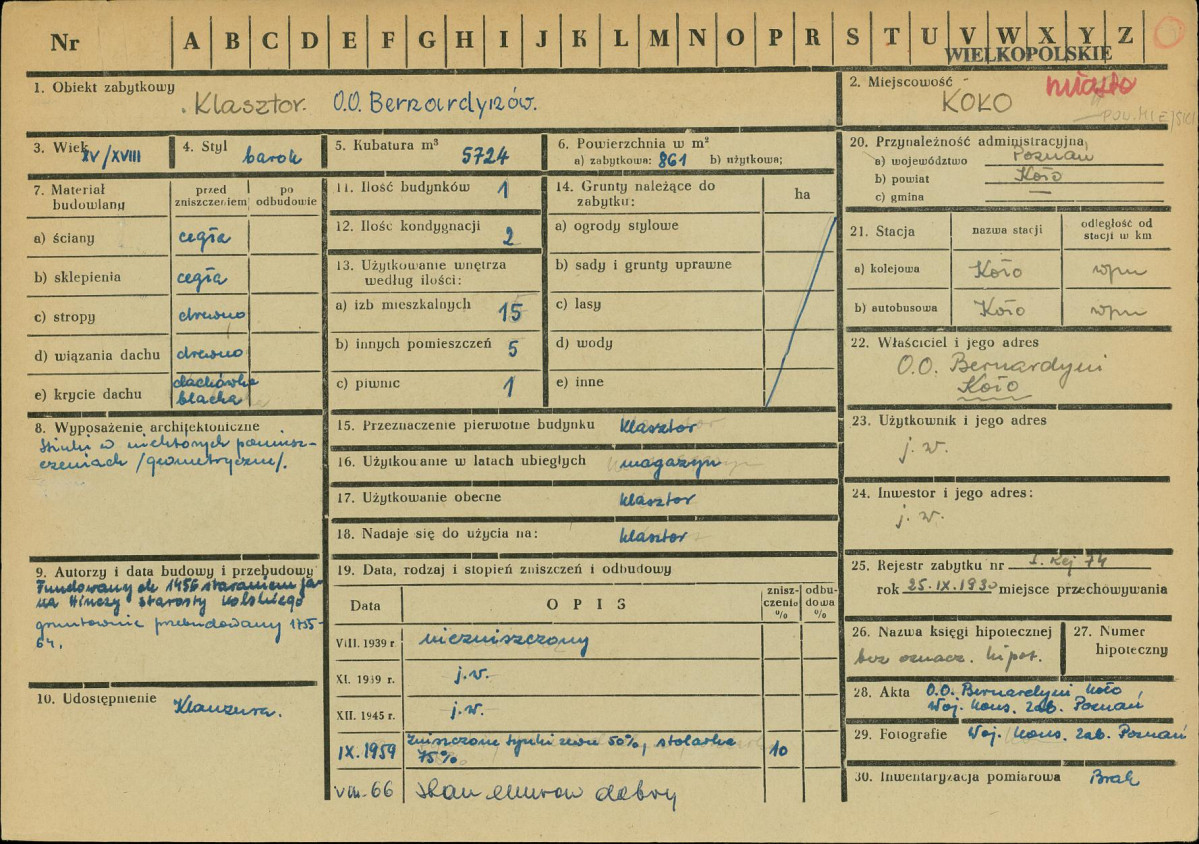 Nr A B C D E F G H I J K L M N O P R S T U V W X Y Z
WIELKOPOLSKIE
1. Obiekt zabytkowy
Klasztor. O.O. Bernardynów.
2. Miejscowość
miasto
KOŁO
3. Wiek XV/XVIII
4. Styl barok
5. Kubatura m³ 5724
6. Powierzchnia w m²
a) zabytkowa: 861 b) użytkowa;
7. Materiał budowlany
przed zniszczeniem
po odbudowie
a) ściany cegła
b) sklepienia cegła
c) stropy drewno
d) wiązania dachu drewno
e) krycie dachu dachówka
blacha
8. Wyposażenie architektoniczne
Stiuki w niektórych pomiesz-
czeniach /geometryczne/.
9. Autorzy i data budowy i przebudowy
Fundowany ok 1456 staraniem Ja-
na Hinczy, starosty kolskiego
gruntownie przebudowany 1755-
64,
10. Udostępnienie Klauzura.
11. Ilość budynków 1
12. Ilość kondygnacji 2
13. Użytkowanie wnętrza
według ilości:
a) izb mieszkalnych 15
b) innych pomieszczeń 5
c) piwnic 1
14. Grunty należące do
zabytku:
ha
a) ogrody stylowe
b) sady i grunty uprawne
c) lasy
d) wody
e) inne
15. Przeznaczenie pierwotne budynku klasztor
16. Użytkowanie w latach ubiegłych magazyn
17. Użytkowanie obecne klasztor
18. Nadaje się do użycia na: klasztor
19. Data, rodzaj i stopień zniszczeń i odbudowy
Data
O P I S
znisz-
czenia
%
odbu-
dowa
%
VIII. 1939 r. niezniszczony
XI. 1939 r. j.w.
XII. 1945 r. j.w.
IX. 1959 Zniszczone tynki zewn 50%, stolarka
75%
10
VIII. 66 stan murów dobry
20. Przynależność administracyjna
a) województwo Poznań
b) powiat Koło
c) gmina —
21. Stacja
nazwa stacji
odległość od
stacji w km
a) kolejowa Koło
b) autobusowa Koło
22. Właściciel i jego adres
O.O. Bernardyni
Koło
23. Użytkownik i jego adres
j. w.
24. Inwestor i jego adres:
j. w.
25. Rejestr zabytku nr
rok 25.IX.1930 miejsce przechowywania
26. Nazwa księgi hipotecznej
bez oznacz. hipot.
27. Numer
hipoteczny
28. Akta O.O. Bernardyni Koło,
Woj. Kons. Zab. Poznań
29. Fotografie Woj. Kons. Zab. Poznań
30. Inwentaryzacja pomiarowa Brak